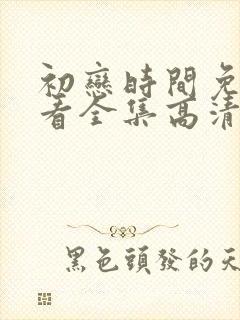 初戀時間免
看全集高清
黑色頭發的天